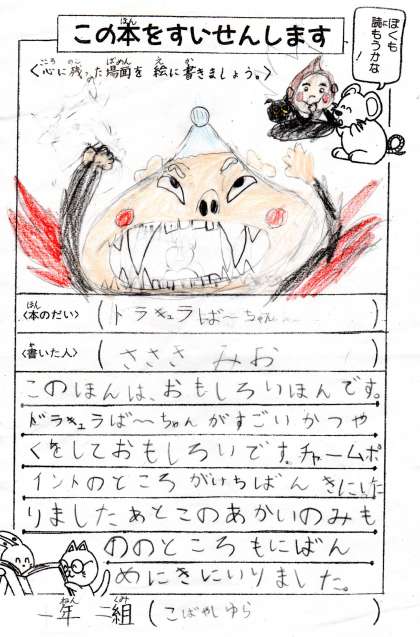 この本をすいせんします
ぼくも
読もうかな
！
〈心に残った場面を 絵に書きましょう。〉
〈本のだい〉（ドラキュラばーちゃん）
〈書いた人〉（ささき みお）
このほんは、おもしろいほんです。
ドラキュラば〜ちゃんがすごいかつや
くをしておもしろいです。チャームポ
イントのところがいちばん きにい
りましたあとこのあかいのみも
ののところもにばん
めにきにいりました。
一年 二組（こばやしゆら）